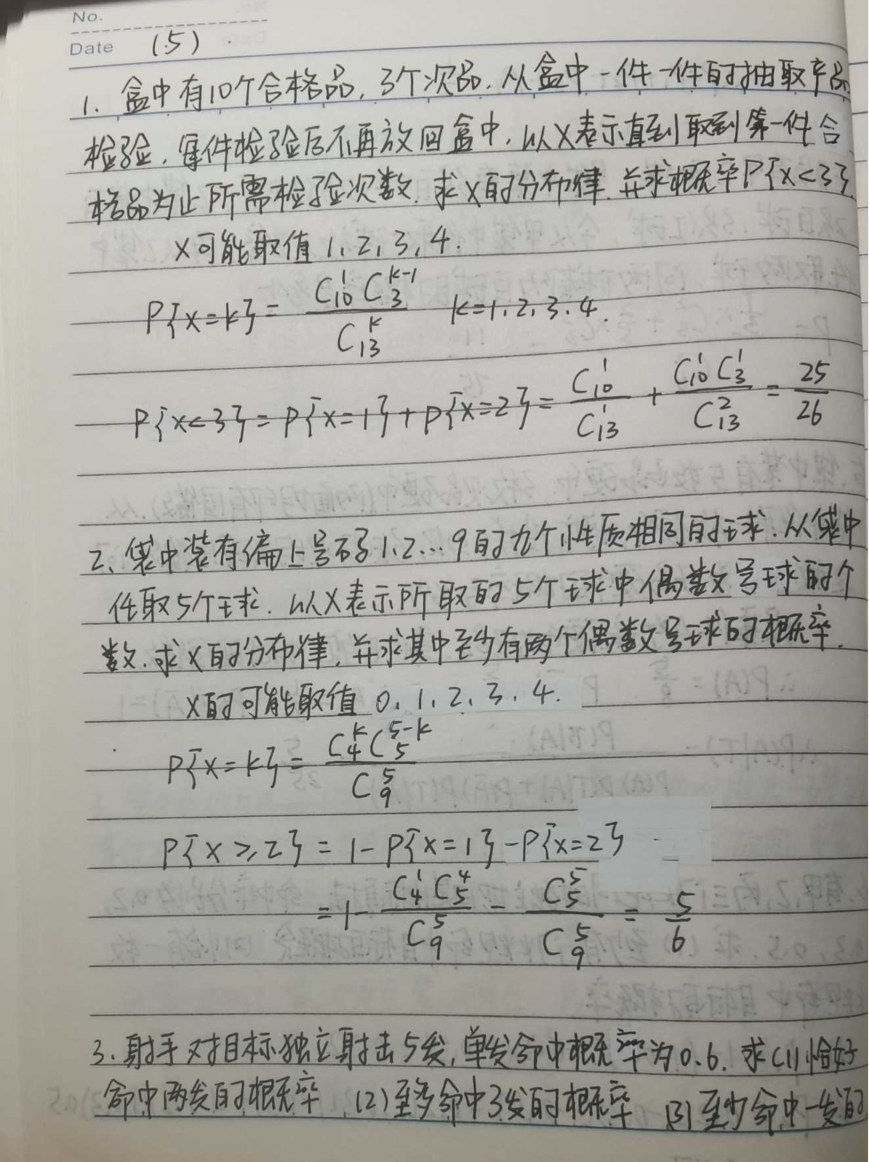 No.
Date (5).
1. 盒中有10个合格品, 3个次品. 从盒中一件一件的抽取产品
检验, 每件检验后不再放回盒中, 以X表示直到取到第一件合
格品为止所需检验次数. 求X的分布律, 并求概率P{X<3}
X可能取值 1, 2, 3, 4.
P{X=k} = \frac{C_{10}^{1} C_{3}^{k-1}}{C_{13}^{k}} k=1, 2, 3. 4.
P{X<3} = P{X=1} + P{X=2} = \frac{C_{10}^{1}}{C_{13}^{1}} + \frac{C_{10}^{1} C_{3}^{1}}{C_{13}^{2}} = \frac{25}{26}
2、袋中装有编上号码1, 2...9的九个性质相同的球. 从袋中
任取5个球. 以X表示所取的5个球中偶数号球的个
数. 求X的分布律, 并求其中至少有两个偶数号球的概率.
X的可能取值 0, 1, 2, 3, 4.
P{X=k} = \frac{C_{4}^{k} C_{5}^{5-k}}{C_{9}^{5}}
P{X≥2} = 1 - P{X=1} - P{X=2}
= 1 - \frac{C_{4}^{1} C_{5}^{4}}{C_{9}^{5}} - \frac{C_{5}^{5}}{C_{9}^{5}} = \frac{5}{6}
3. 射手对目标独立射击5发, 单发命中概率为0.6. 求(1)恰好
命中两发的概率. (2)至多命中3发的概率 (3)至少命中一发的